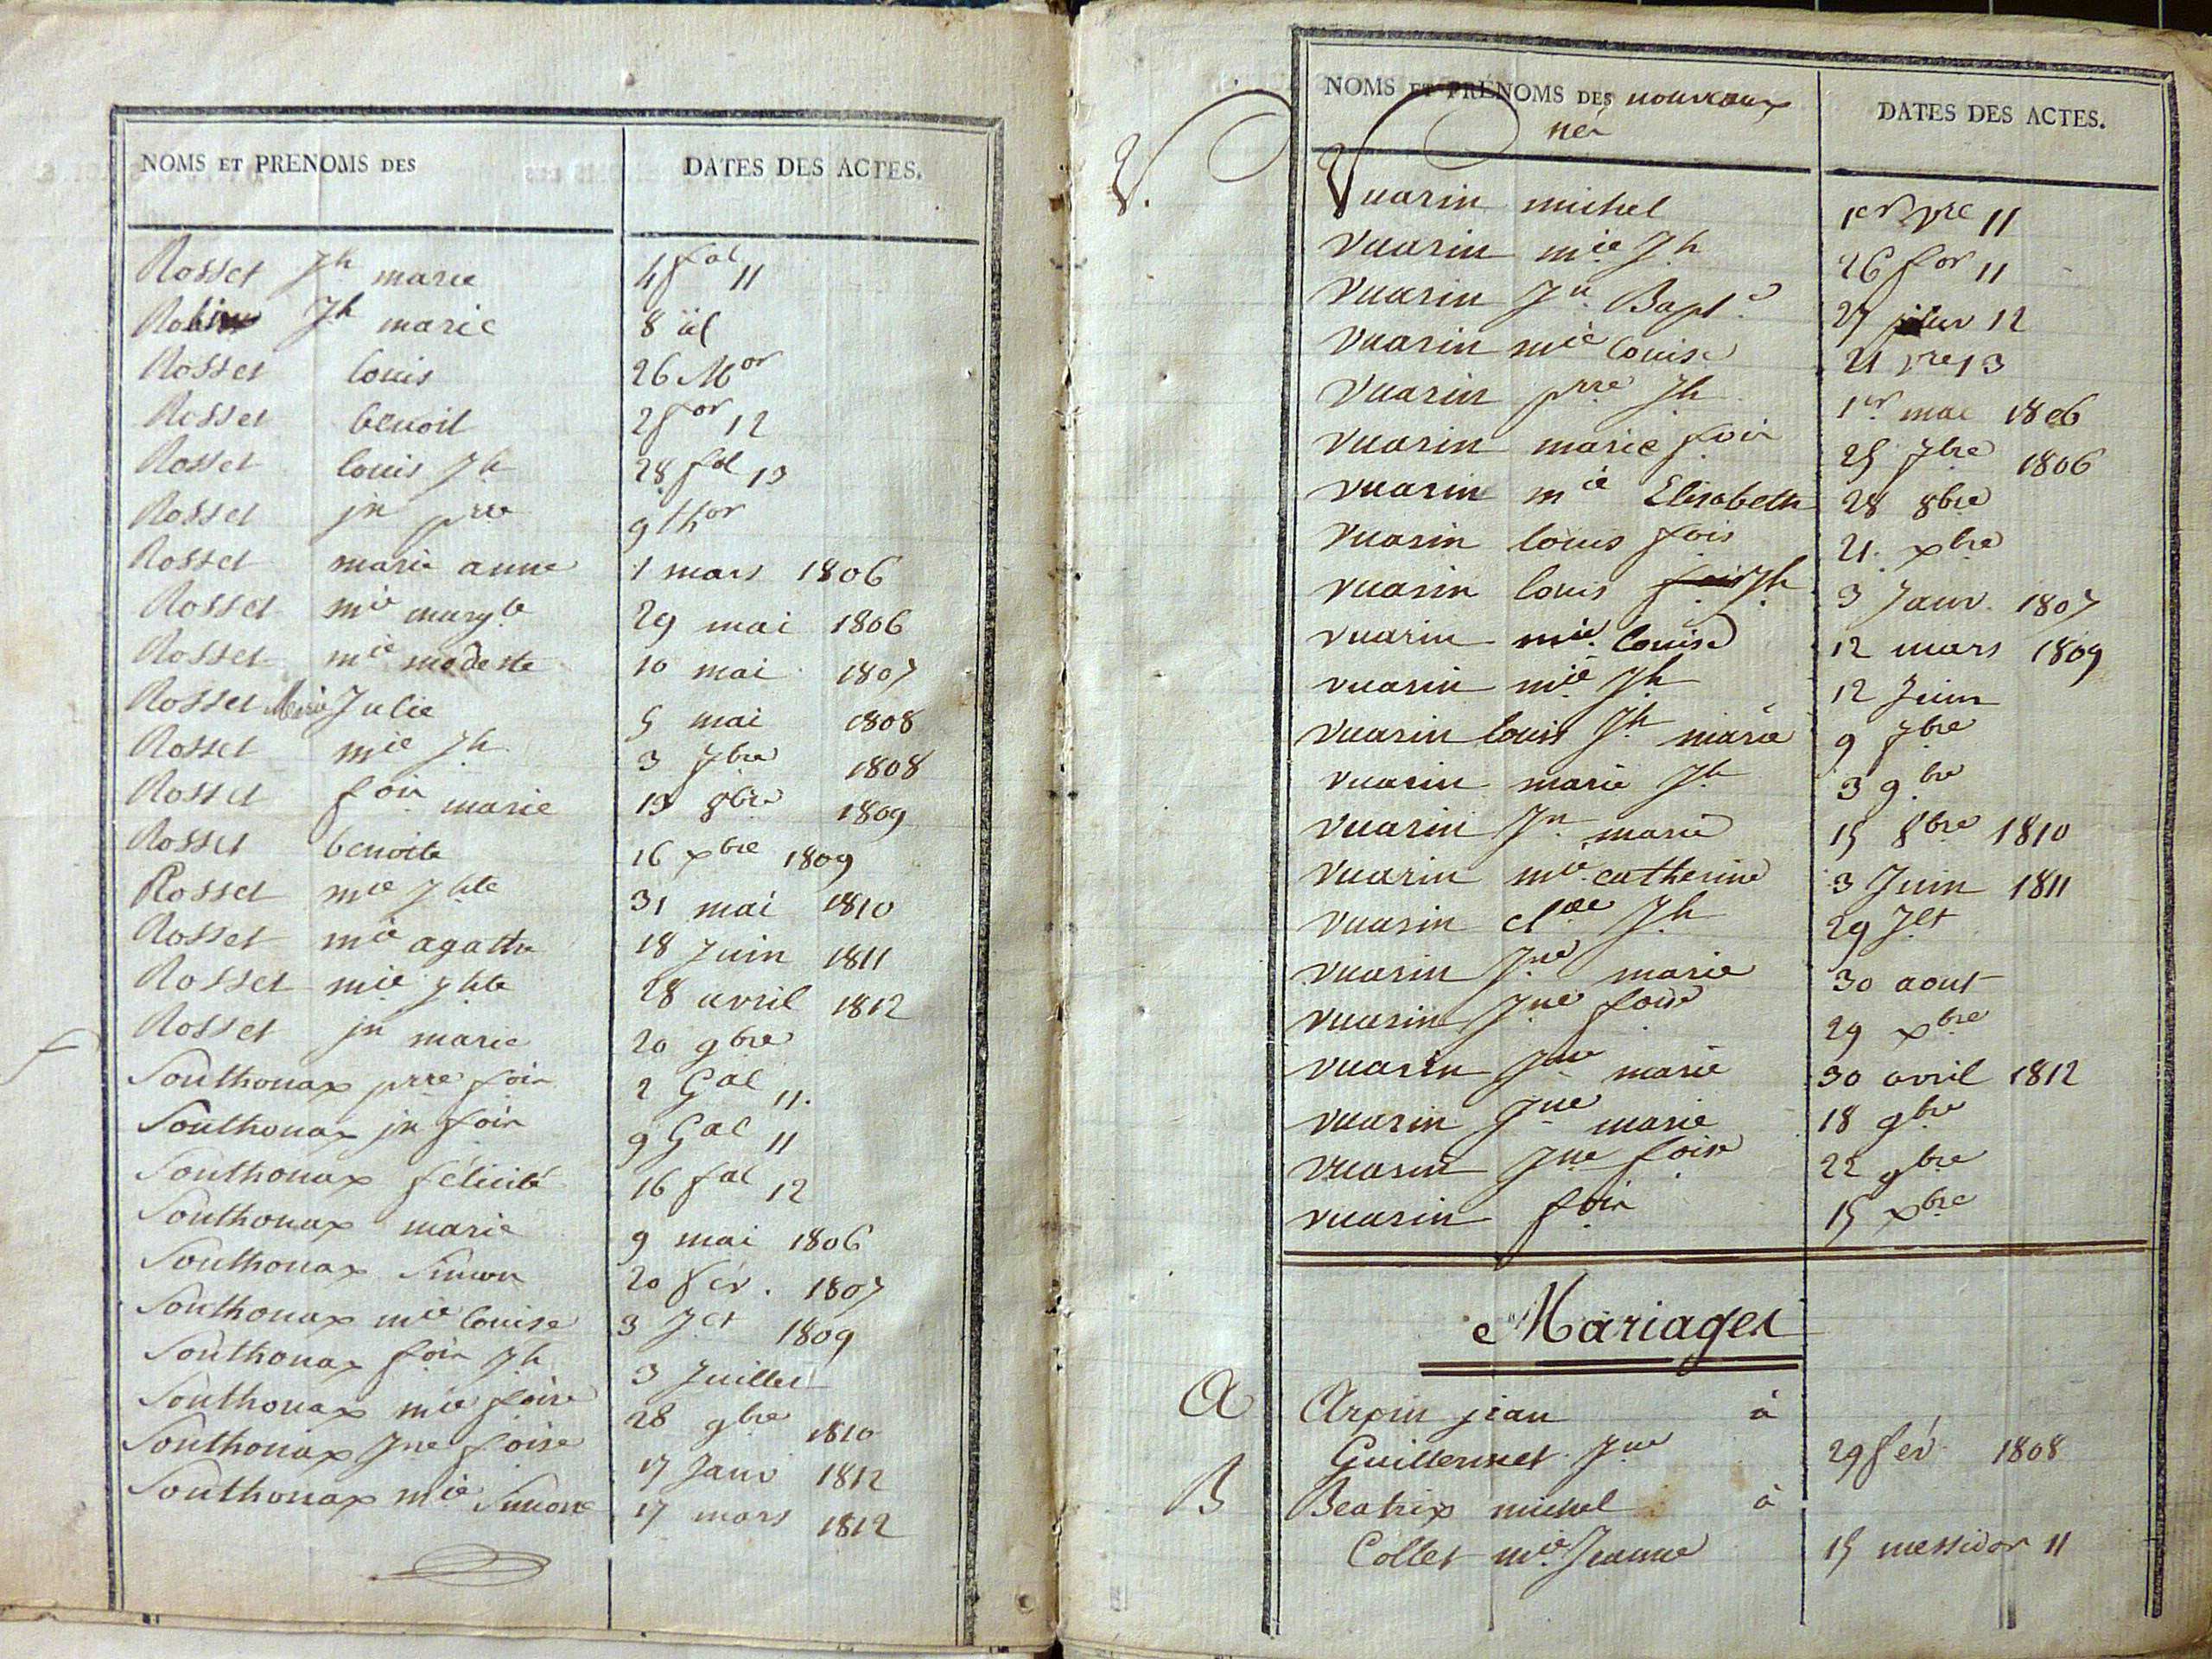 NOMS ET PRENOMS DES
DATES DES ACTES.
Rosset Jh marie 4 fal 11
Jh marie 8 id
Rosset louis 26 Mor
Rosset benoit 2 for 12
Rosset louis Jh 28 fal 13
Rosset jn prre 9 thor
Rosset marie anne 1 mars 1806
Rosset mie margte 29 mai 1806
Rosset mie modeste 10 mai 1807
Rosset Marie Julie 5 mai 1808
Rosset mie Jh 3 7bre 1808
Rosset fois marie 13 8bre 1809
Rosset benoite 16 xbre 1809
Rosset mie Jhte 31 mai 1810
Rosset mie agathe 18 Juin 1811
Rosset mie jhte 28 avril 1812
Rosset jn marie 20 9bre
S
Sonthonax prre fois 2 Gal 11.
Sonthonax jn fois 9 Gal 11
Sonthonax félicité 16 fal 12
Sonthonax marie 9 mai 1806
Sonthonax Simon 20 fév. 1807
Sonthonax mie louise 3 Jet 1809
Sonthonax fois Jh 3 Juillet
Sonthonax mie foise 28 9bre 1810
Sonthonax Jne foise 17 Janv 1812
Sonthonax mie Simone 17 mars 1812
NOMS ET PRÉNOMS DES nouveaux
nés
DATES DES ACTES.
V.
Vuarin michel 1er vre 11
Vuarin mie Jh 26 for 11
Vuarin Jn Bapte 27 12
Vuarin mie louise 21 vre 13
Vuarin prre Jh 1er mai 1806
Vuarin marie fois 25 7bre 1806
Vuarin mie Elisabeth 28 8bre
Vuarin louis fois 21. xbre
Vuarin louis fois Jh 3 Janv. 1807
Vuarin mie louise 12 mars 1809
Vuarin mie Jh 12 Juin
Vuarin louis Jh marie 9 7bre
Vuarin marie Jh 3 9bre
Vuarin Jn marie 15 8bre 1810
Vuarin mie catherine 3 Juin 1811
Vuarin clde Jh 29 Jlt
Vuarin Jne marie 30 aout
Vuarin Jne foise 29 xbre
Vuarin Jne marie 30 avril 1812
Vuarin Jne marie 18 9bre
Vuarin Jne foise 22 9bre
Vuarin fois 15 xbre
Mariages
A
Arpin jean à
Guillermet Jne 29 fév 1808
B
Beatrix michel à
Collet mie Jeanne 15 messidor 11